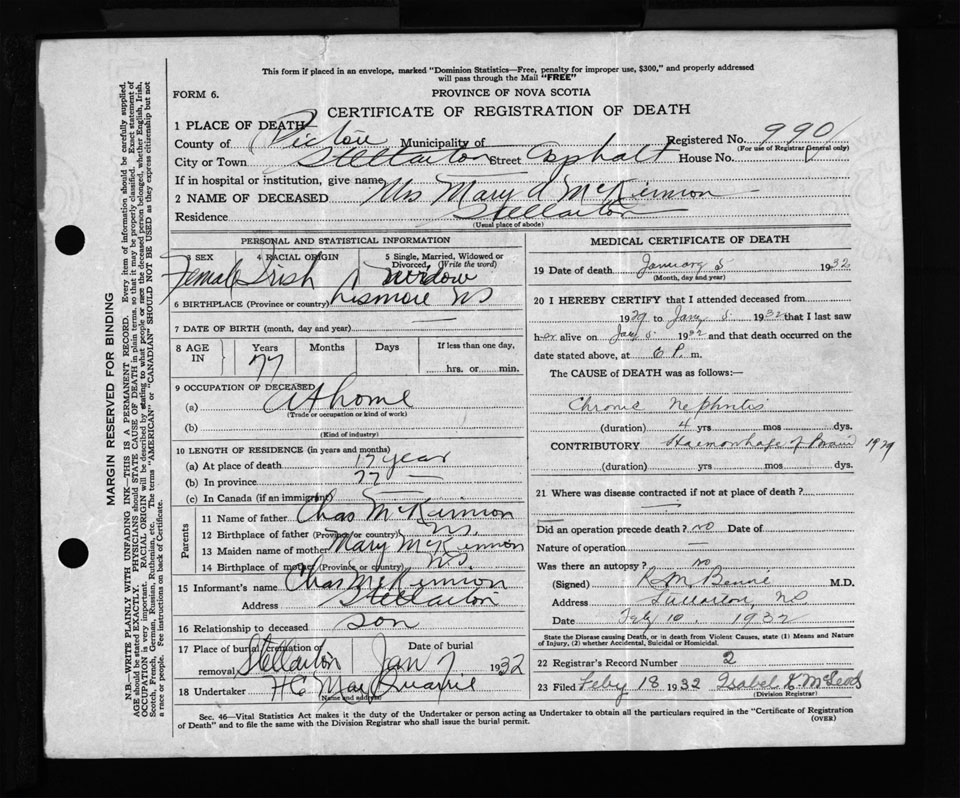 This form if placed in an envelope, marked "Dominion Statistics—Free, penalty for improper use, $300," and properly addressed
will pass through the Mail "FREE"
FORM 6.
PROVINCE OF NOVA SCOTIA
CERTIFICATE OF REGISTRATION OF DEATH
1 PLACE OF DEATH
County of Pictou Municipality of Registered No. 990
(For use of Registrar General only)
City or Town Stellarton Street Asphalt House No.
If in hospital or institution, give name
2 NAME OF DECEASED Mrs Mary A McKinnon
Residence Stellarton
(Usual place of abode)
PERSONAL AND STATISTICAL INFORMATION
3 SEX 4 RACIAL ORIGIN 5 Single, Married, Widowed or Divorced (Write the word)
Female Irish Widow
6 BIRTHPLACE (Province or country) Lismore NS
7 DATE OF BIRTH (month, day and year)
8 AGE IN Years Months Days If less than one day,
77 hrs. or min.
9 OCCUPATION OF DECEASED
(a) At home
(Trade or occupation or kind of work)
(b)
(Kind of industry)
10 LENGTH OF RESIDENCE (in years and months)
(a) At place of death 17 year
(b) In province 77 —
(c) In Canada (if an immigrant)
Parents
11 Name of father Chas McKinnon
12 Birthplace of father (Province or country) N.S.
13 Maiden name of mother Mary McKinnon
14 Birthplace of mother (Province or country) N.S.
15 Informant's name Chas McKinnon
Address Stellarton
16 Relationship to deceased son
17 Place of burial, cremation or removal Stellarton Date of burial Jan 7 1932
18 Undertaker H C
Name and address
MEDICAL CERTIFICATE OF DEATH
19 Date of death January 5 1932
(Month, day and year)
20 I HEREBY CERTIFY that I attended deceased from
1927 to Jany 5 1932 that I last saw
her alive on Jany 5 1932 and that death occurred on the
date stated above, at 6 P. m.
The CAUSE of DEATH was as follows:—
Chronic Nephritis
(duration) 4 yrs mos dys.
CONTRIBUTORY Haemorrhage of Brain 1929
(duration) yrs mos dys.
21 Where was disease contracted if not at place of death?
Did an operation precede death? no Date of
Nature of operation —
Was there an autopsy? no
(Signed) M.D.
Address Stellarton, NS
Date Feby 10. 1932
State the Disease causing Death, or in death from Violent Causes, state (1) Means and Nature
of Injury, (2) whether Accidental, Suicidal or Homicidal.
22 Registrar's Record Number 2
23 Filed Feby 18 1932 Isabel McLeod
(Division Registrar)
Sec. 46—Vital Statistics Act makes it the duty of the Undertaker or person acting as Undertaker to obtain all the particulars required in the "Certificate of Registration
of Death" and to file the same with the Division Registrar who shall issue the burial permit.
(OVER)
MARGIN RESERVED FOR BINDING
N.B.—WRITE PLAINLY WITH UNFADING INK—THIS IS A PERMANENT RECORD. Every item of information should be carefully supplied.
AGE should be stated EXACTLY. PHYSICIANS should STATE CAUSE OF DEATH in plain terms, so that it may be properly classified. Exact statement of
OCCUPATION is very important. RACIAL ORIGIN will be described by stating to what people or race the deceased person belonged, whether English, Irish,
Scotch, French, German, Russian, Ruthenian, etc. The terms "AMERICAN" or "CANADIAN" SHOULD NOT BE USED as they express citizenship but not
a race or people. Fee instructions on back of Certificate.